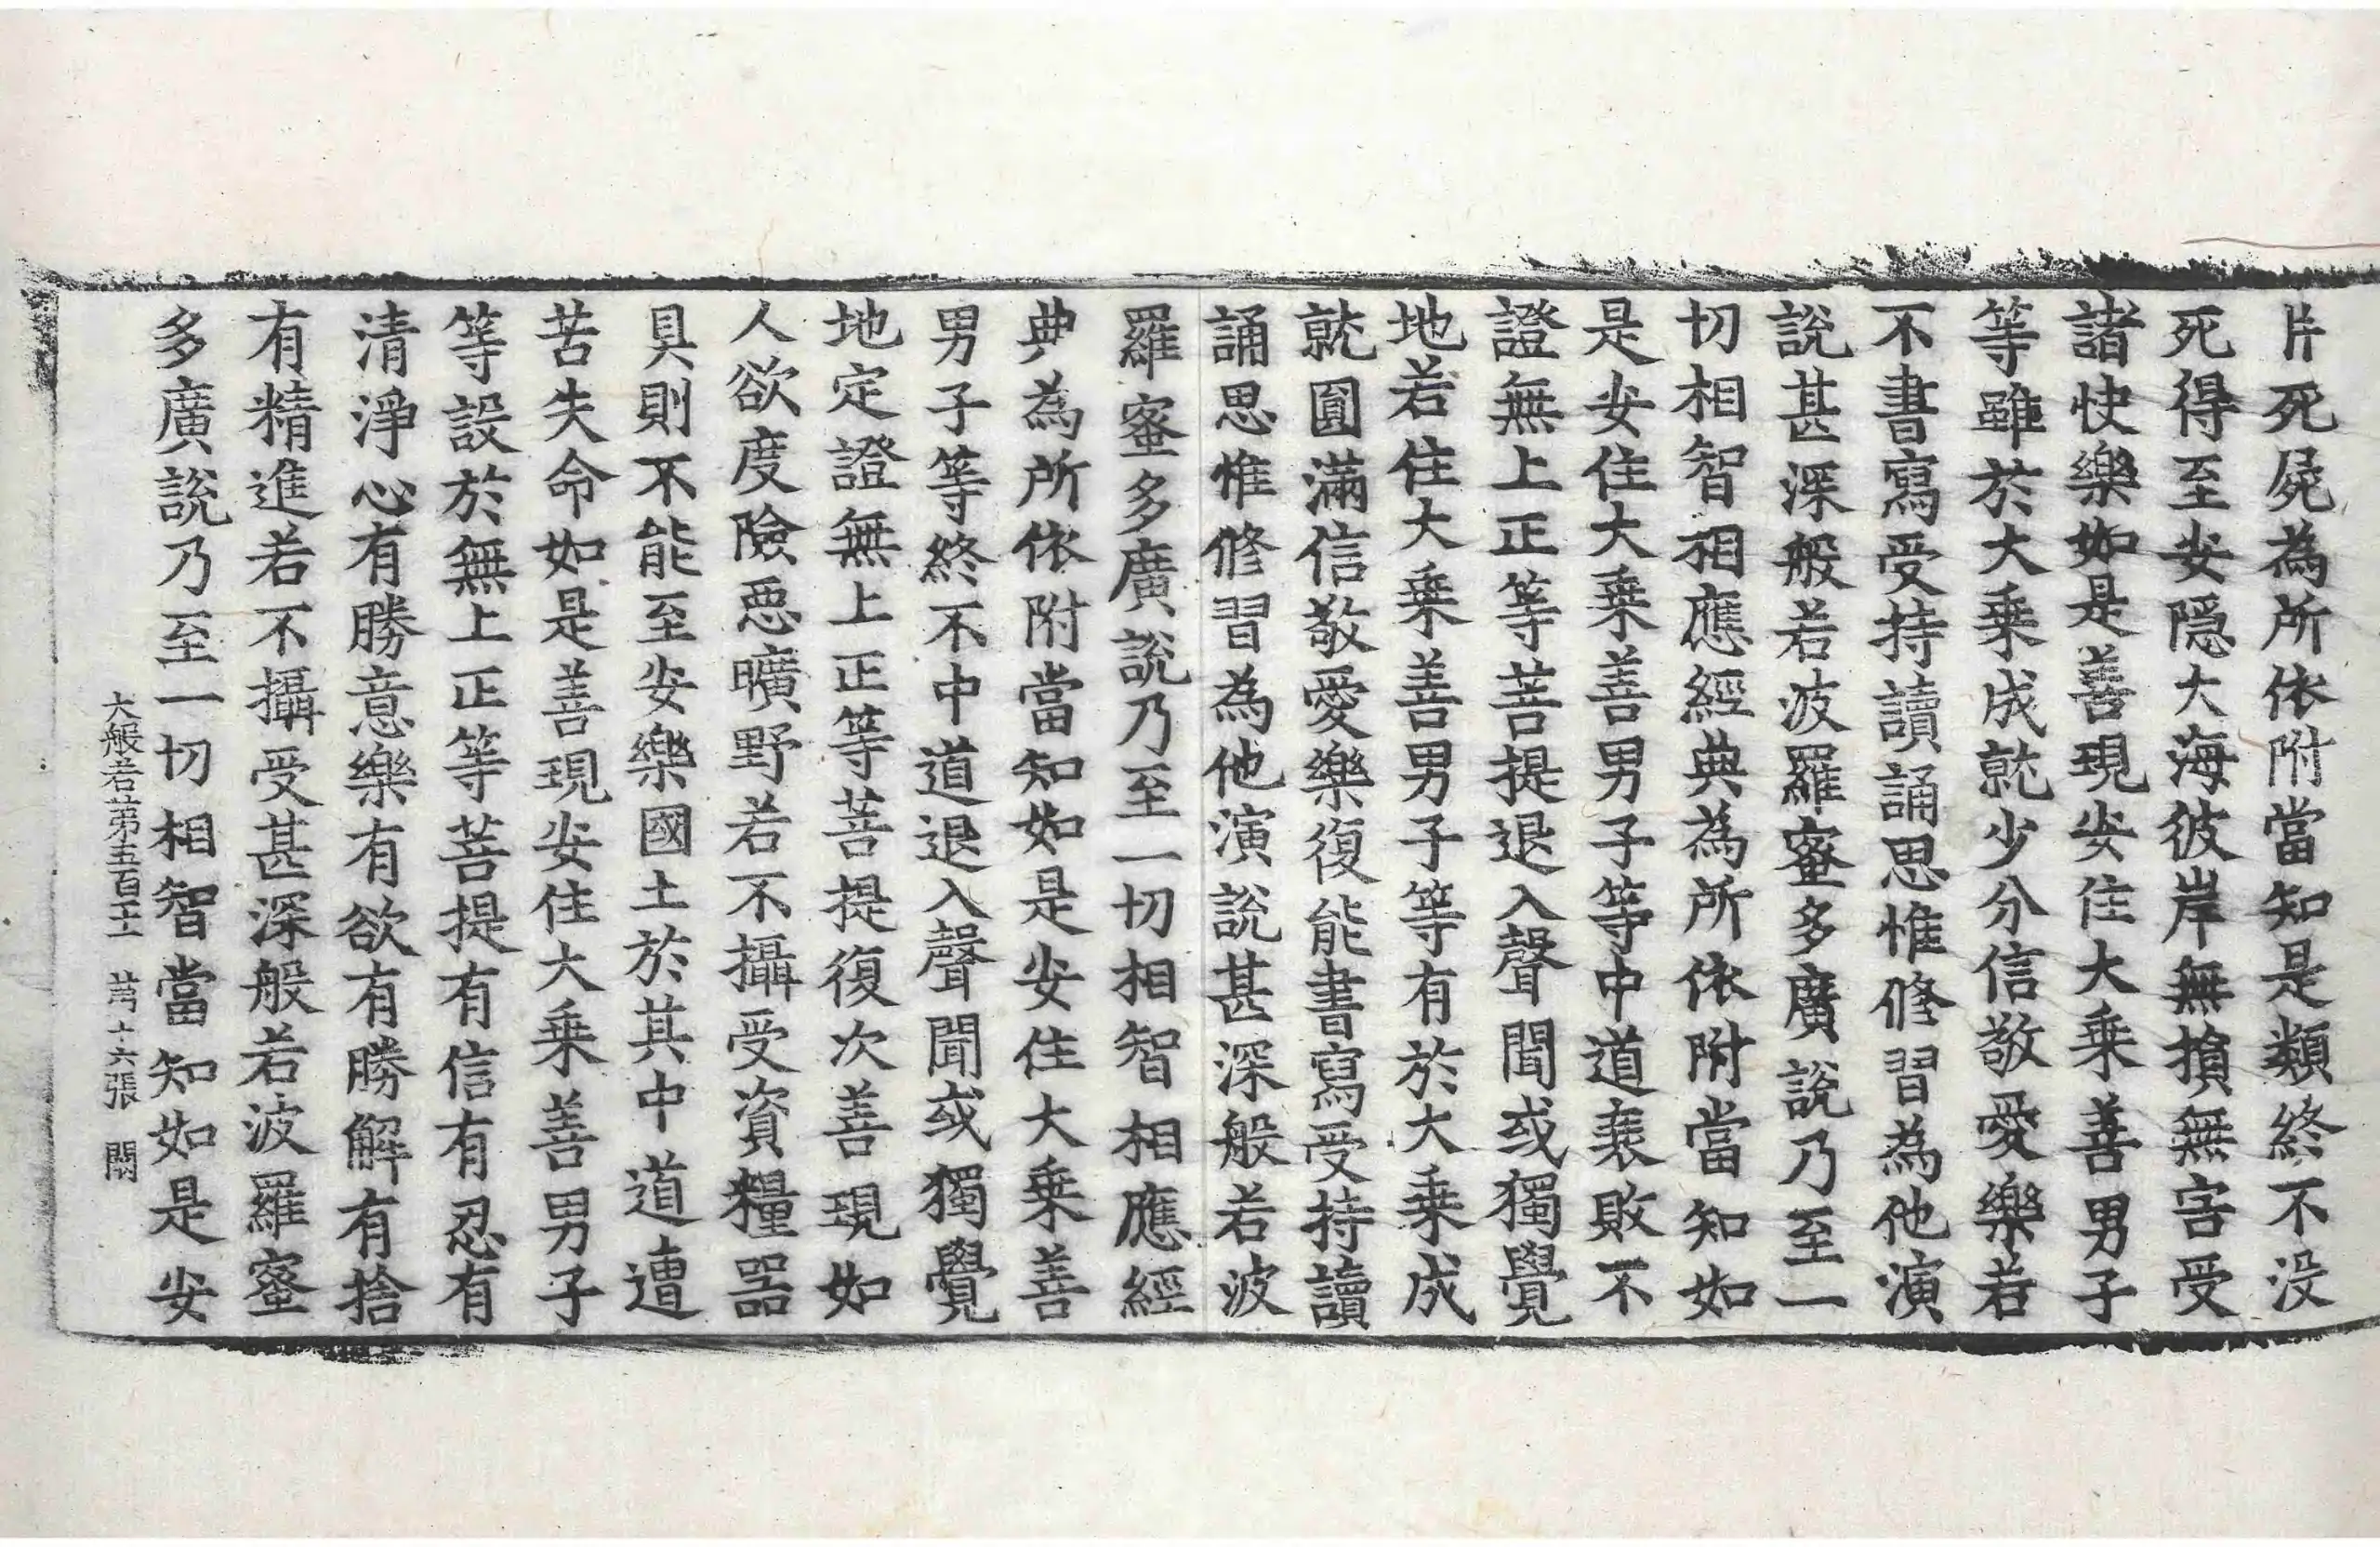 片死屍為所依附當知是類終不没
死得至安隱大海彼岸無損無害受
諸快樂如是善現安住大乗善男子
等雖於大乗成就少分信敬愛樂若
不書寫受持讀誦思惟修習為他演
說甚深般若波羅蜜多廣說乃至一
切相智相應經典為所依附當知如
是安住大乗善男子等中道衰敗不
證無上正等菩提退入聲聞或獨覺
地若住大乗善男子等有於大乗成
就圓滿信敬愛樂復能書寫受持讀
誦思惟修習為他演說甚深般若波
羅蜜多廣說乃至一切相智相應經
典為所依附當知如是安住大乗善
男子等終不中道退入聲聞或獨覺
地定證無上正等菩提復次善現如
人欲度險惡曠野若不攝受資糧器
具則不能至安樂國土於其中道遭
苦失命如是善現安住大乗善男子
等設於無上正等菩提有信有忍有
清淨心有勝意樂有欲有勝解有捨
有精進若不攝受甚深般若波羅蜜
多廣說乃至一切相智當知如是安
大般若第五百十二 第十六張 闕